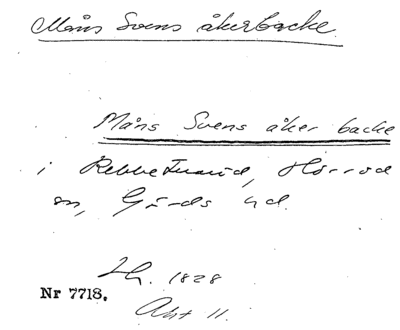 Måns Svens åkerbacke.
Måns Svens åker backe
i Rebbetuaröd, Hörröd
sn, Gärds hd.
Lh. 1828
Nr 7718.
Akt 11.